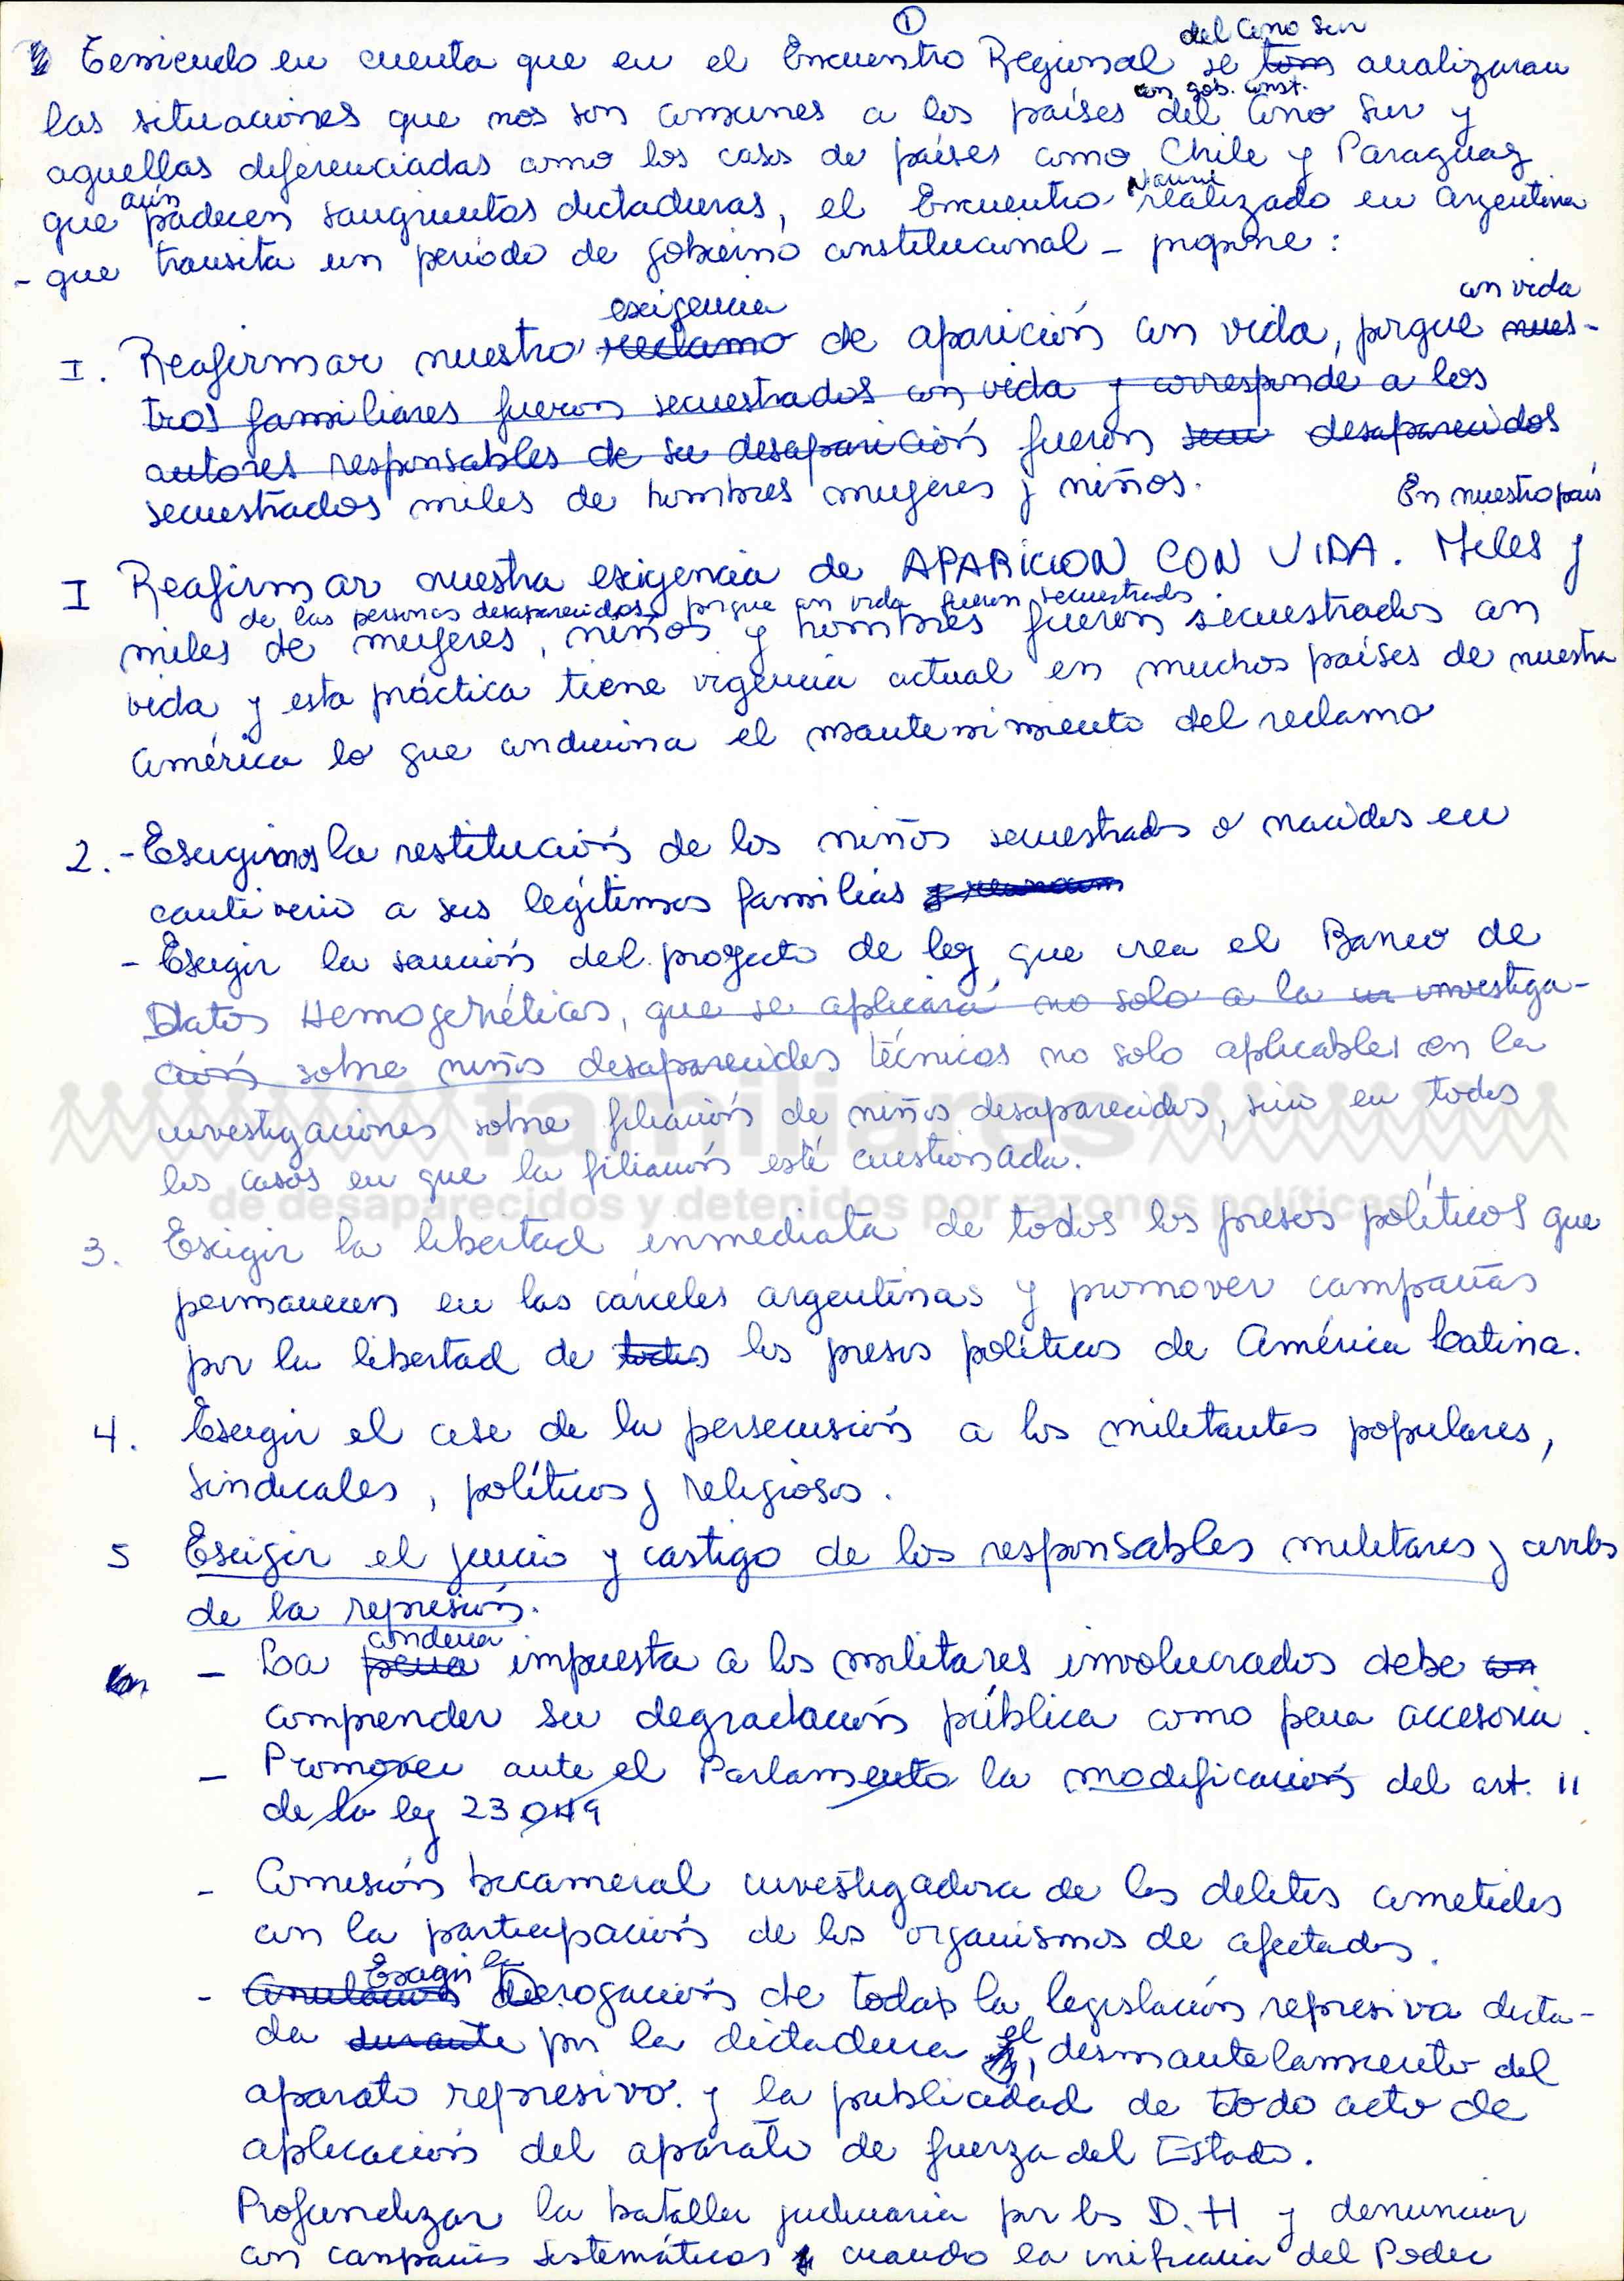 ①
del Cono Sur
Teniendo en cuenta que en el Encuentro Regional se tom analizaran
con gob. const.
las situaciones que nos son comunes a los países del Cono Sur y
aquellas diferenciadas como los casos de países como Chile y Paraguay
aún
que padecen sangrientas dictaduras, el Encuentro realizado en Argentina
- que transita un período de gobierno constitucional - propone:
exigencia
con vida
I. Reafirmar nuestro reclamo de aparición con vida, porque nues-
tros familiares fueron secuestrados con vida y corresponde a los
autores responsables de su desaparición fueron secu desaparecidos
secuestrados miles de hombres mujeres y niños.
En nuestro país
I Reafirmar nuestra exigencia de APARICION CON VIDA. Miles y
de las personas desaparecidas porque con vida fueron secuestrados.
miles de mujeres, niños y hombres fueron secuestrados con
vida y esta práctica tiene vigencia actual en muchos países de nuestra
América lo que condiciona el mantenimiento del reclamo
2. - Exigimos la restitución de los niños secuestrados o nacidos en
cautiverio a sus legítimas familias y
- Exigir la sanción del proyecto de ley que crea el Banco de
Datos Hemogenéticos, que se aplicará no solo a la in investiga-
ción sobre niños desaparecidos técnicas no solo aplicables en la
investigaciones sobre filiación de niños desaparecidos, sino en todos
los casos en que la filiación esté cuestionada.
familiares
de desaparecidos y detenidos por razones políticas
3. Exigir la libertad inmediata de todos los presos políticos que
permanecen en las cárceles argentinas y promover campañas
por la libertad de todos los presos políticos de América Latina.
4. Exigir el cese de la persecusión a los militantes populares,
sindicales, políticos y religiosos.
5 Exigir el juicio y castigo de los responsables militares y civiles
de la represión.
condena
- La pena impuesta a los militares involucrados debe con
comprender su degradación pública como pena accesoria.
- Promover ante el Parlamento la modificación del art. 11
de la ley 23049
- Comisión bicameral investigadora de los delitos cometidos
con la participación de los organismos de afectados.
Exigir la
- Anulación Derogación de todas la legislación represiva dicta-
el
da durante por la dictadura y, desmantelamiento del
aparato represivo. y la publicidad de todo acto de
aplicación del aparato de fuerza del Estado.
Profundizar la batalla judiciaria por los D.H y denunciar
con campañas sistemáticas y cuando la ineficacia del Poder